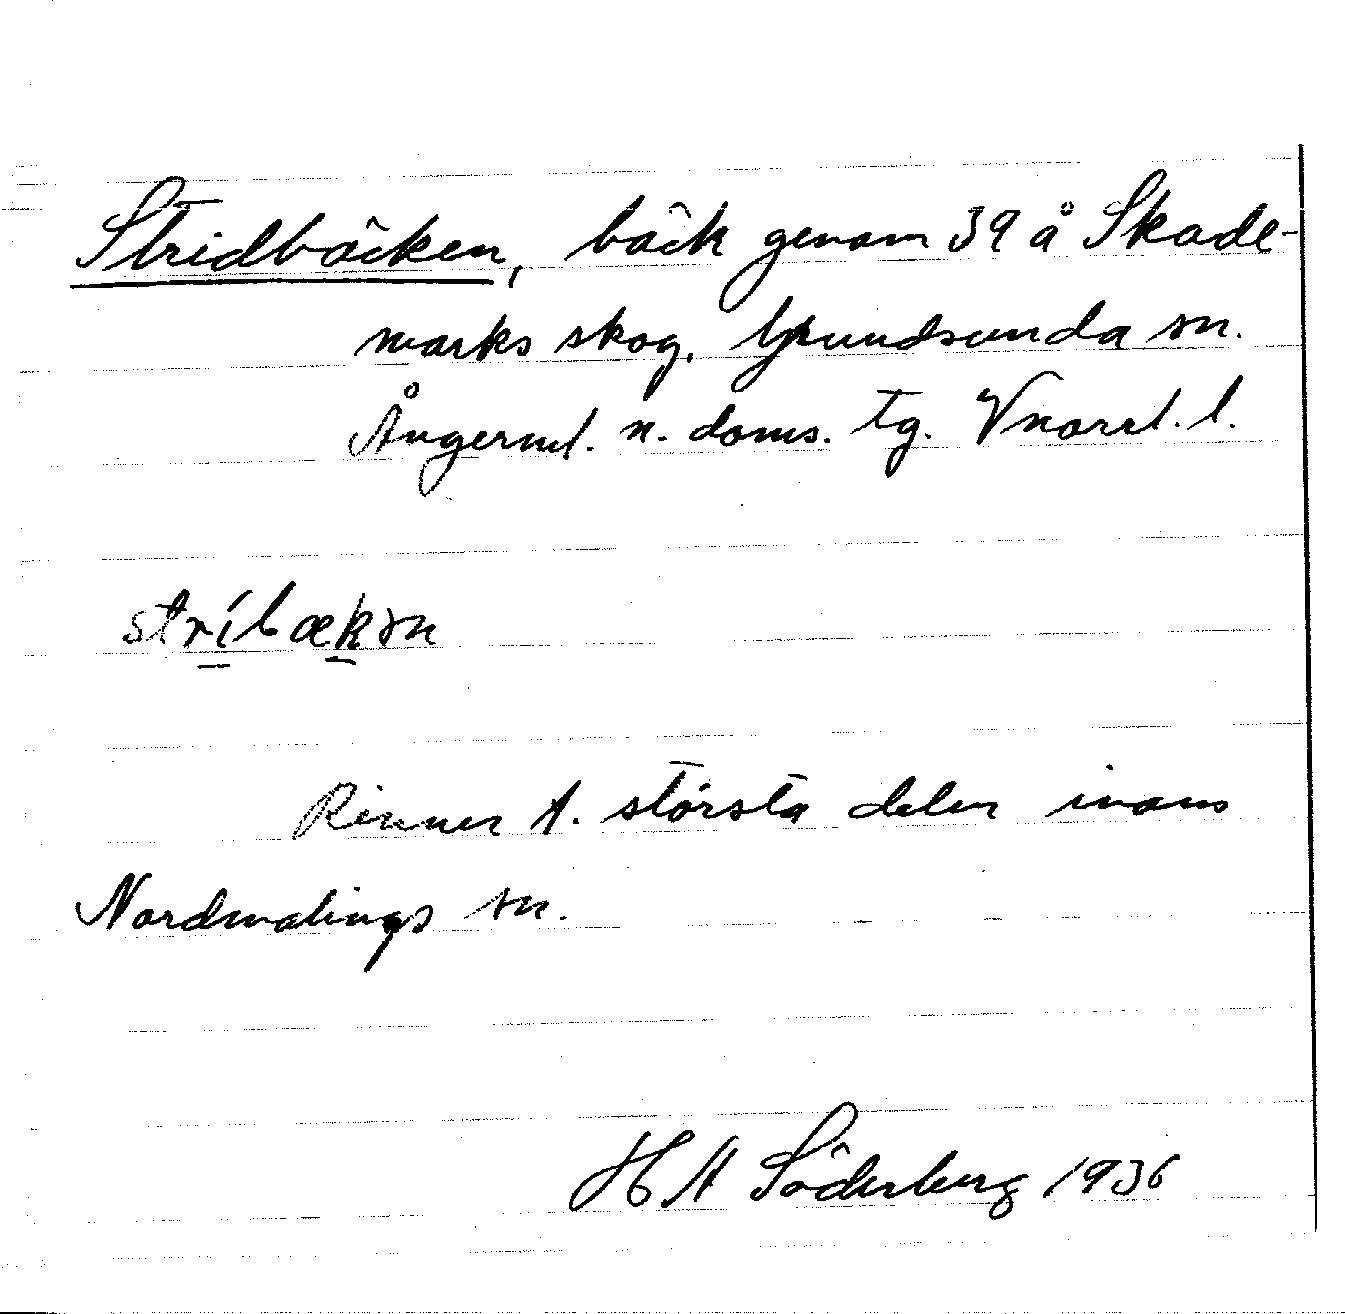 Stridbäcken, bäck genom 39 å Skade-
marks skog. Grundsunda sn.
Ångerml. n. doms. tg. Vnorrl. l.
stríbækən
Rinner t. största delen inom
Nordmalings sn.
H A Söderberg 1936